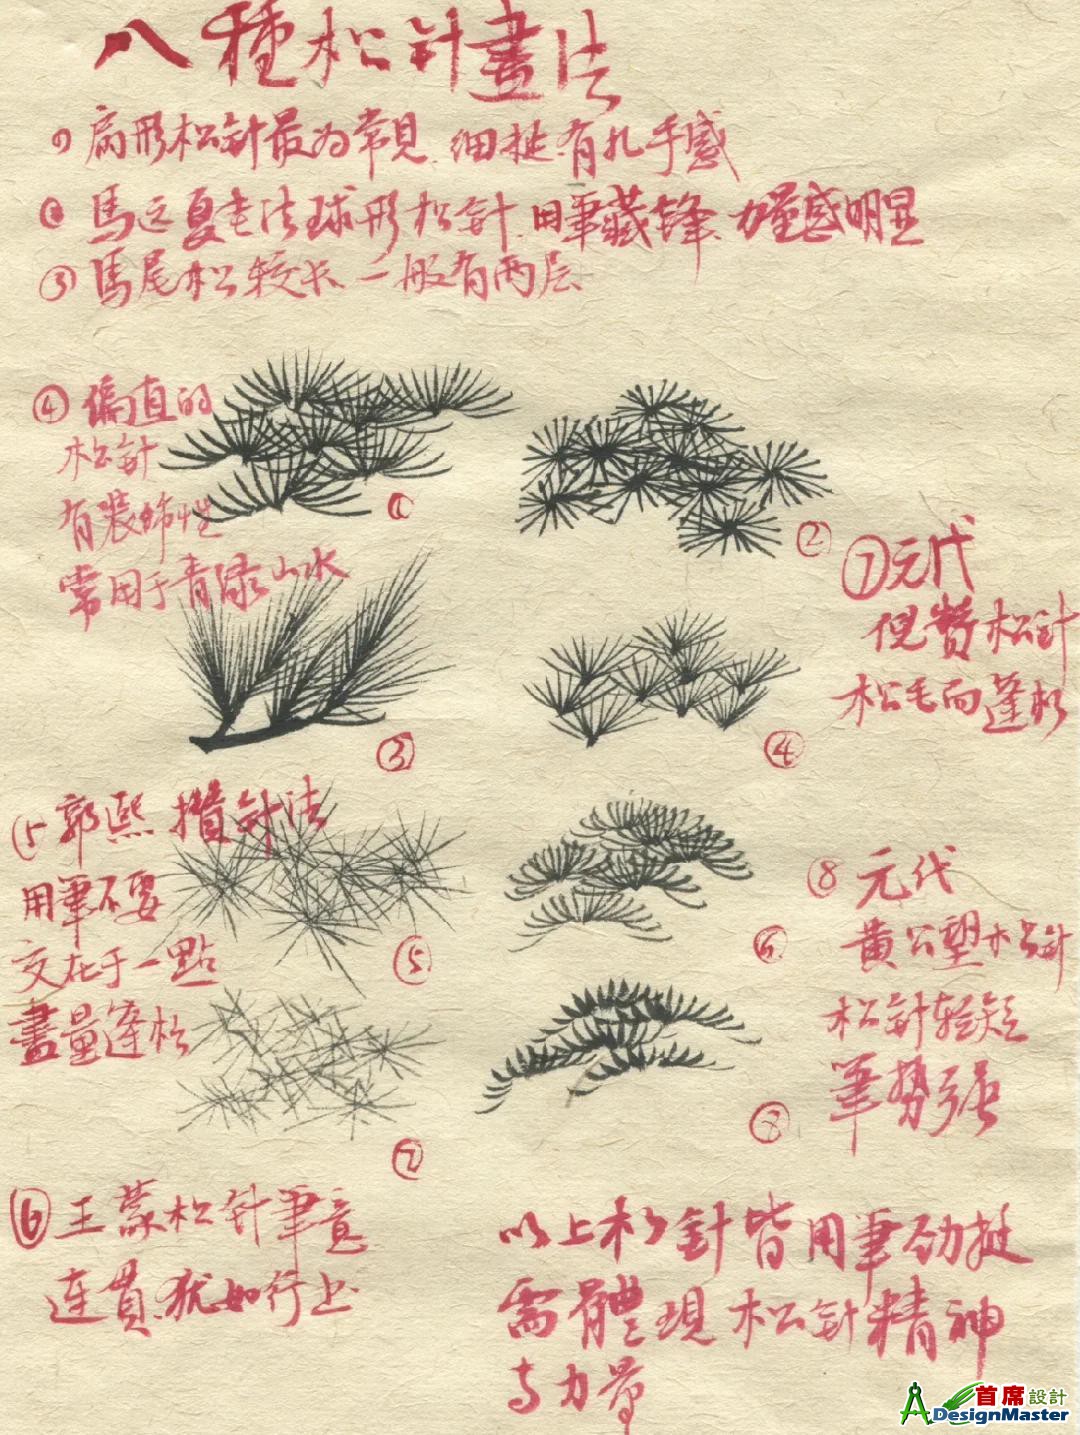 八種松針畫法
① 扇形松針最为常見、细挺、有扎手感
② 馬远夏圭法球形松針、用筆藏鋒、力量感明显
③ 馬尾松較长、一般有两层
④ 偏直的
松針
有装饰性
常用于青绿山水
①
②
③
④
⑦ 元代
倪瓚松針
松毛而蓬松
⑤ 郭熙 攢針法
用筆不要
交在于一點
盡量蓬松
⑤
⑥
⑦
⑧
⑧ 元代
黄公望松針
松針轻短
筆势强
⑥ 王蒙松針筆意
連貫、犹如行书
以上松針皆用筆劲挺
需體現松針精神
与力量
首席設計
DesignMaster